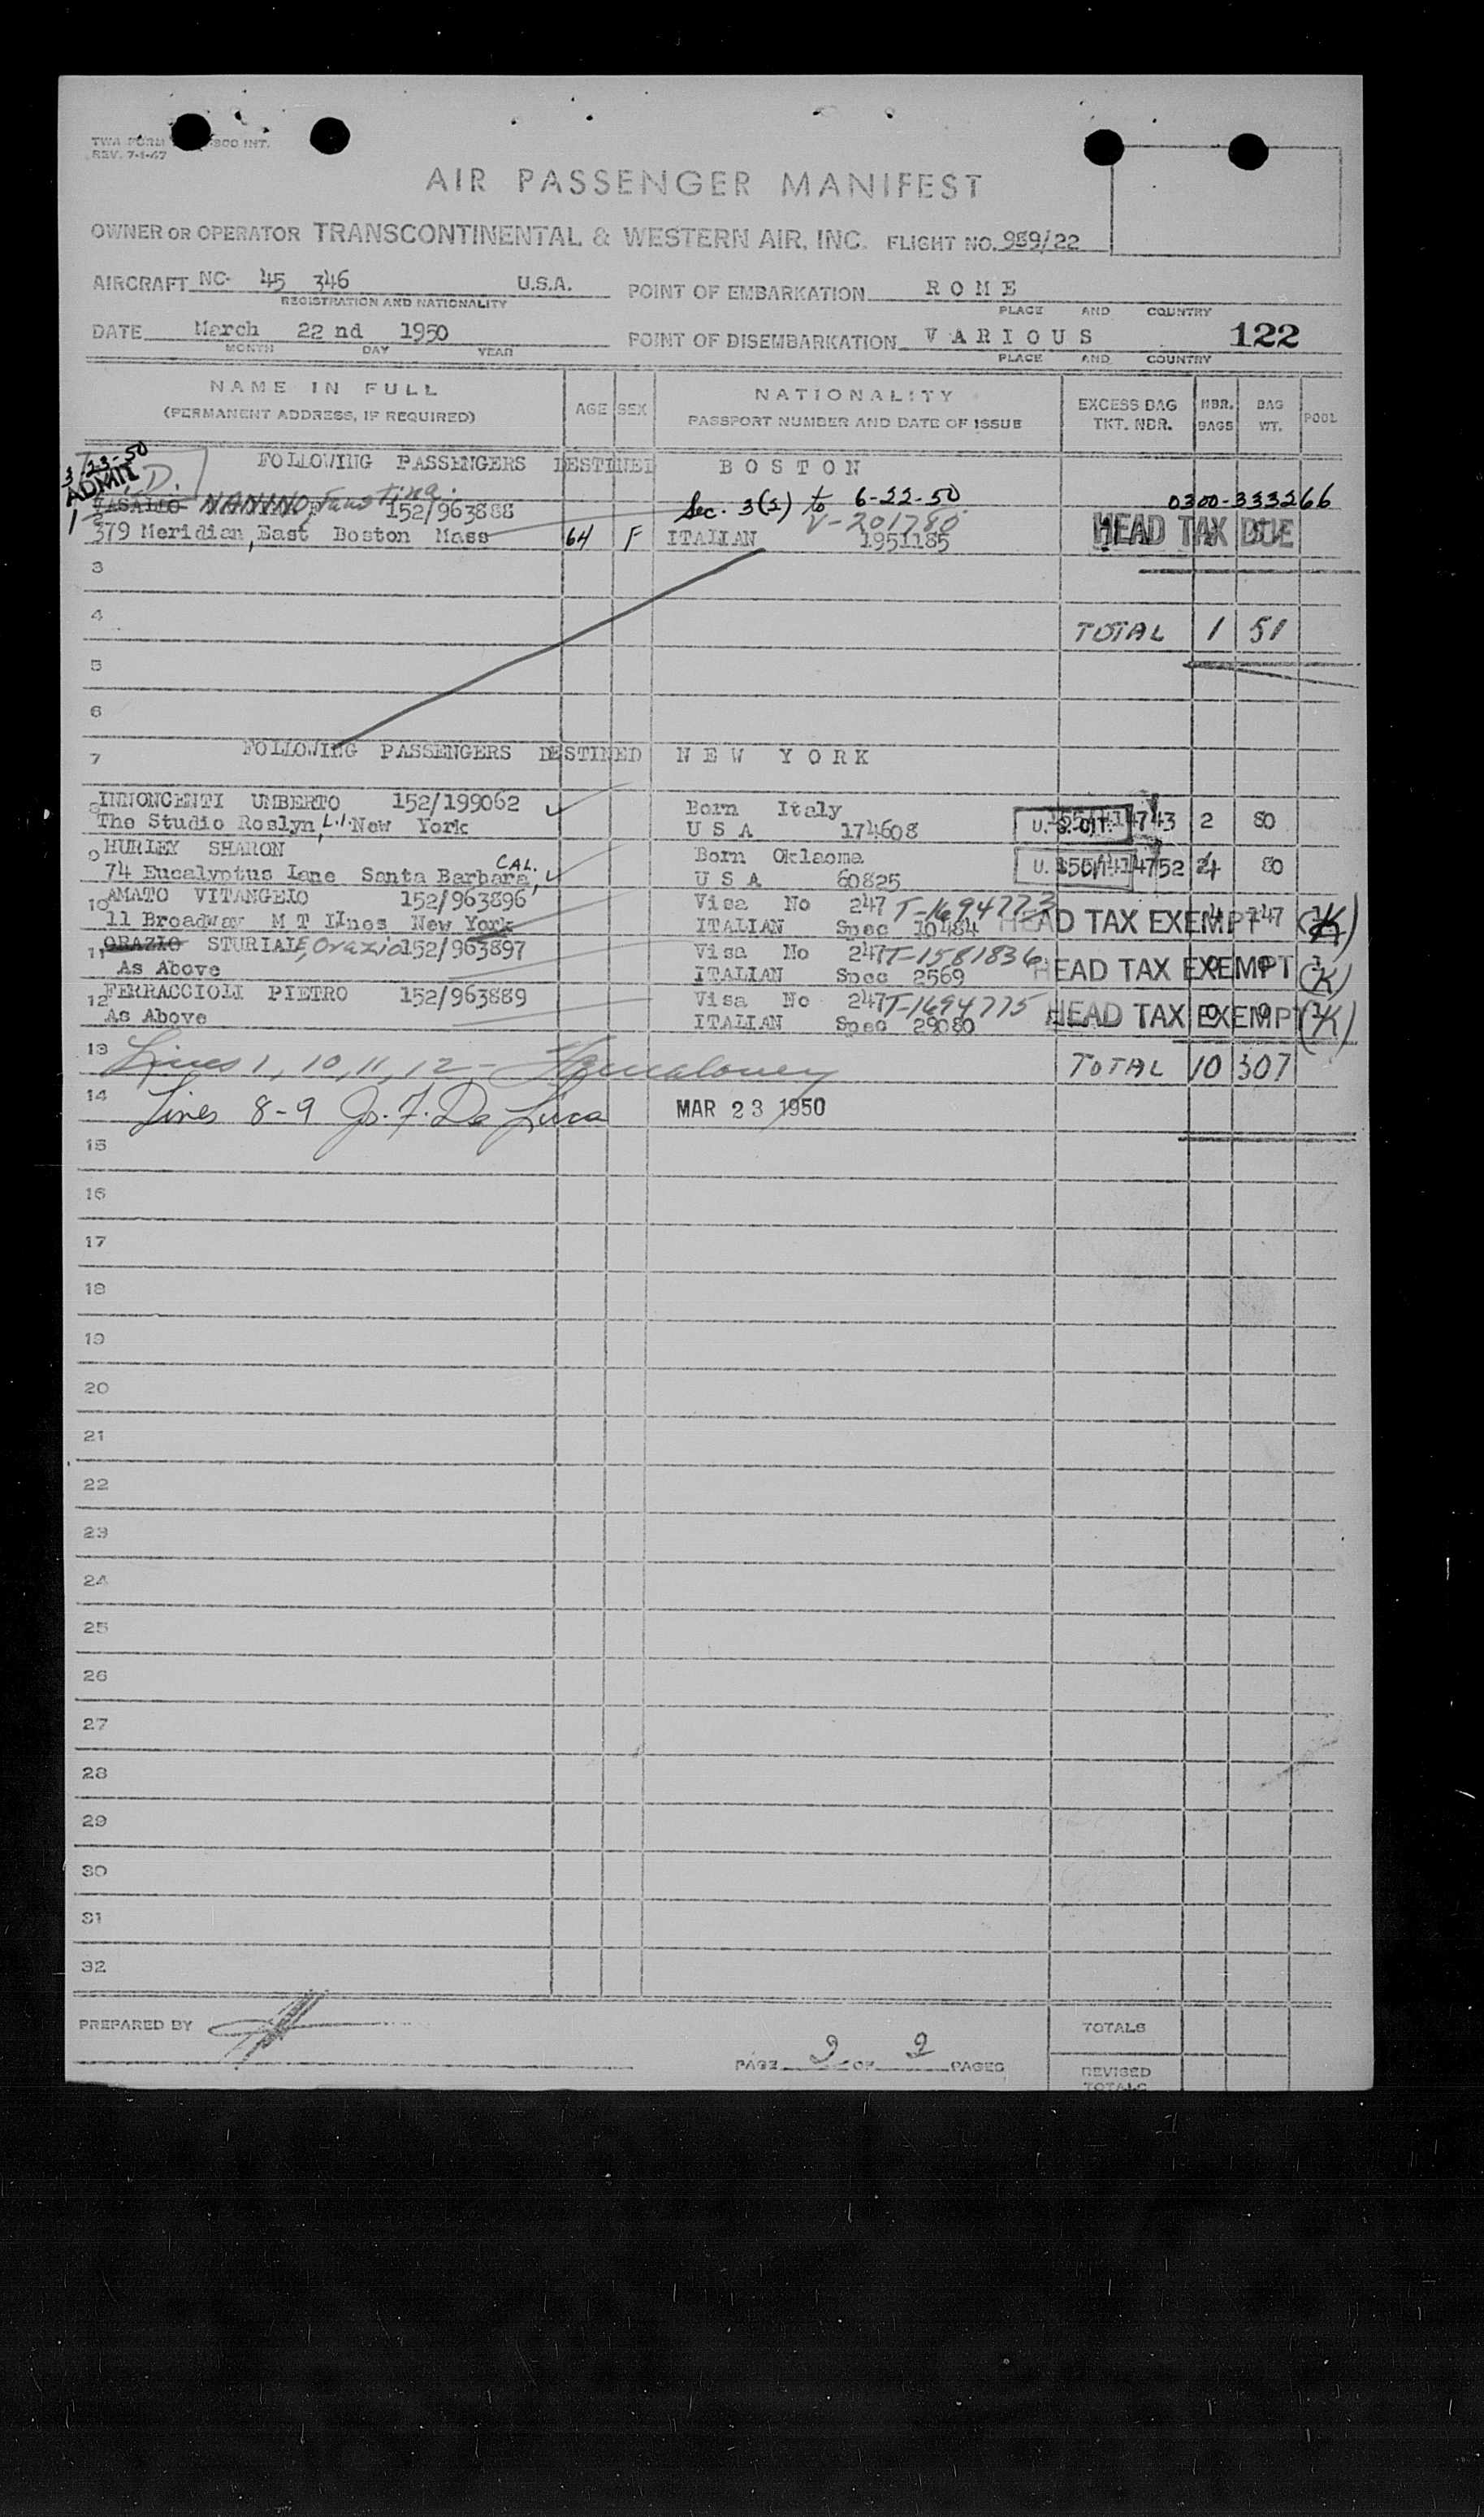 TWA FORM 800 INT.
REV. 7-1-47
AIR PASSENGER MANIFEST
OWNER OR OPERATOR TRANSCONTINENTAL & WESTERN AIR, INC. FLIGHT NO. 989/22
AIRCRAFT NC- 45 346 U.S.A. POINT OF EMBARKATION R O M E
REGISTRATION AND NATIONALITY PLACE AND COUNTRY
DATE March 22 nd 1950 POINT OF DISEMBARKATION V A R I O U S 122
MONTH DAY YEAR PLACE AND COUNTRY
NAME IN FULL AGE SEX NATIONALITY EXCESS BAG NBR. BAG POOL
(PERMANENT ADDRESS, IF REQUIRED) PASSPORT NUMBER AND DATE OF ISSUE TKT. NBR. BAGS WT.
3/23-50
ADMIT D. FOLLOWING PASSENGERS DESTINED B O S T O N
1 VASALLO NANINO, Faustina. 152/963888 Sec. 3(2) to 6-22-50 0300-333266
V-201780
379 Meridian, East Boston Mass 64 F ITALIAN 1951185 HEAD TAX DUE
3
4 TOTAL 1 51
5
6
7 FOLLOWING PASSENGERS DESTINED N E W Y O R K
8 INNONCENTI UMBERTO 152/199062 Born Italy
The Studio Roslyn, L.I. New York U S A 174608 U. S. CIT. 2 80
9 HURLEY SHARON Born Oklaoma
74 Eucalyptus Lane Santa Barbara, CAL. U S A 60825 80
10 AMATO VITANGELO 152/963896 Visa No 247 T-1694773
11 Broadway M T LInes New York ITALIAN Spec 10484 HEAD TAX EXEMPT (K)
11 ORAZIO STURIALE, Orazio 152/963897 Visa No 247 T-1581836
As Above ITALIAN Spec 2569 HEAD TAX EXEMPT (K)
12 FERRACCIOLI PIETRO 152/963889 Visa No 247 T-1694775
As Above ITALIAN Spec 29080 HEAD TAX EXEMPT (K)
13 Lines 1, 10, 11, 12 - TOTAL 10 307
14 Lines 8-9 Jo. F. De Luca MAR 23 1950
15
16
17
18
19
20
21
22
23
24
25
26
27
28
29
30
31
32
PREPARED BY TOTALS
PAGE 2 OF 2 PAGES REVISED
TOTALS